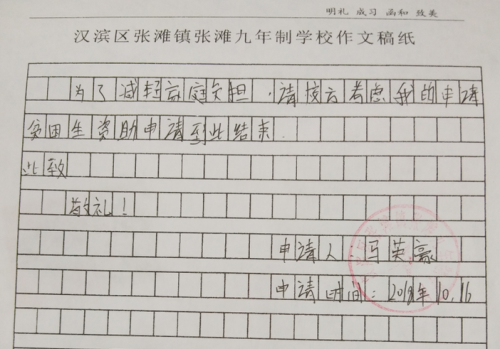 明礼 成习 函和 致美
汉滨区张滩镇张滩九年制学校作文稿纸
为了减轻家庭负担，请校方考虑我的申请
贫困生资助申请到此结束.
此致
敬礼！
申请人：马英豪
申请时间：2018年10.16